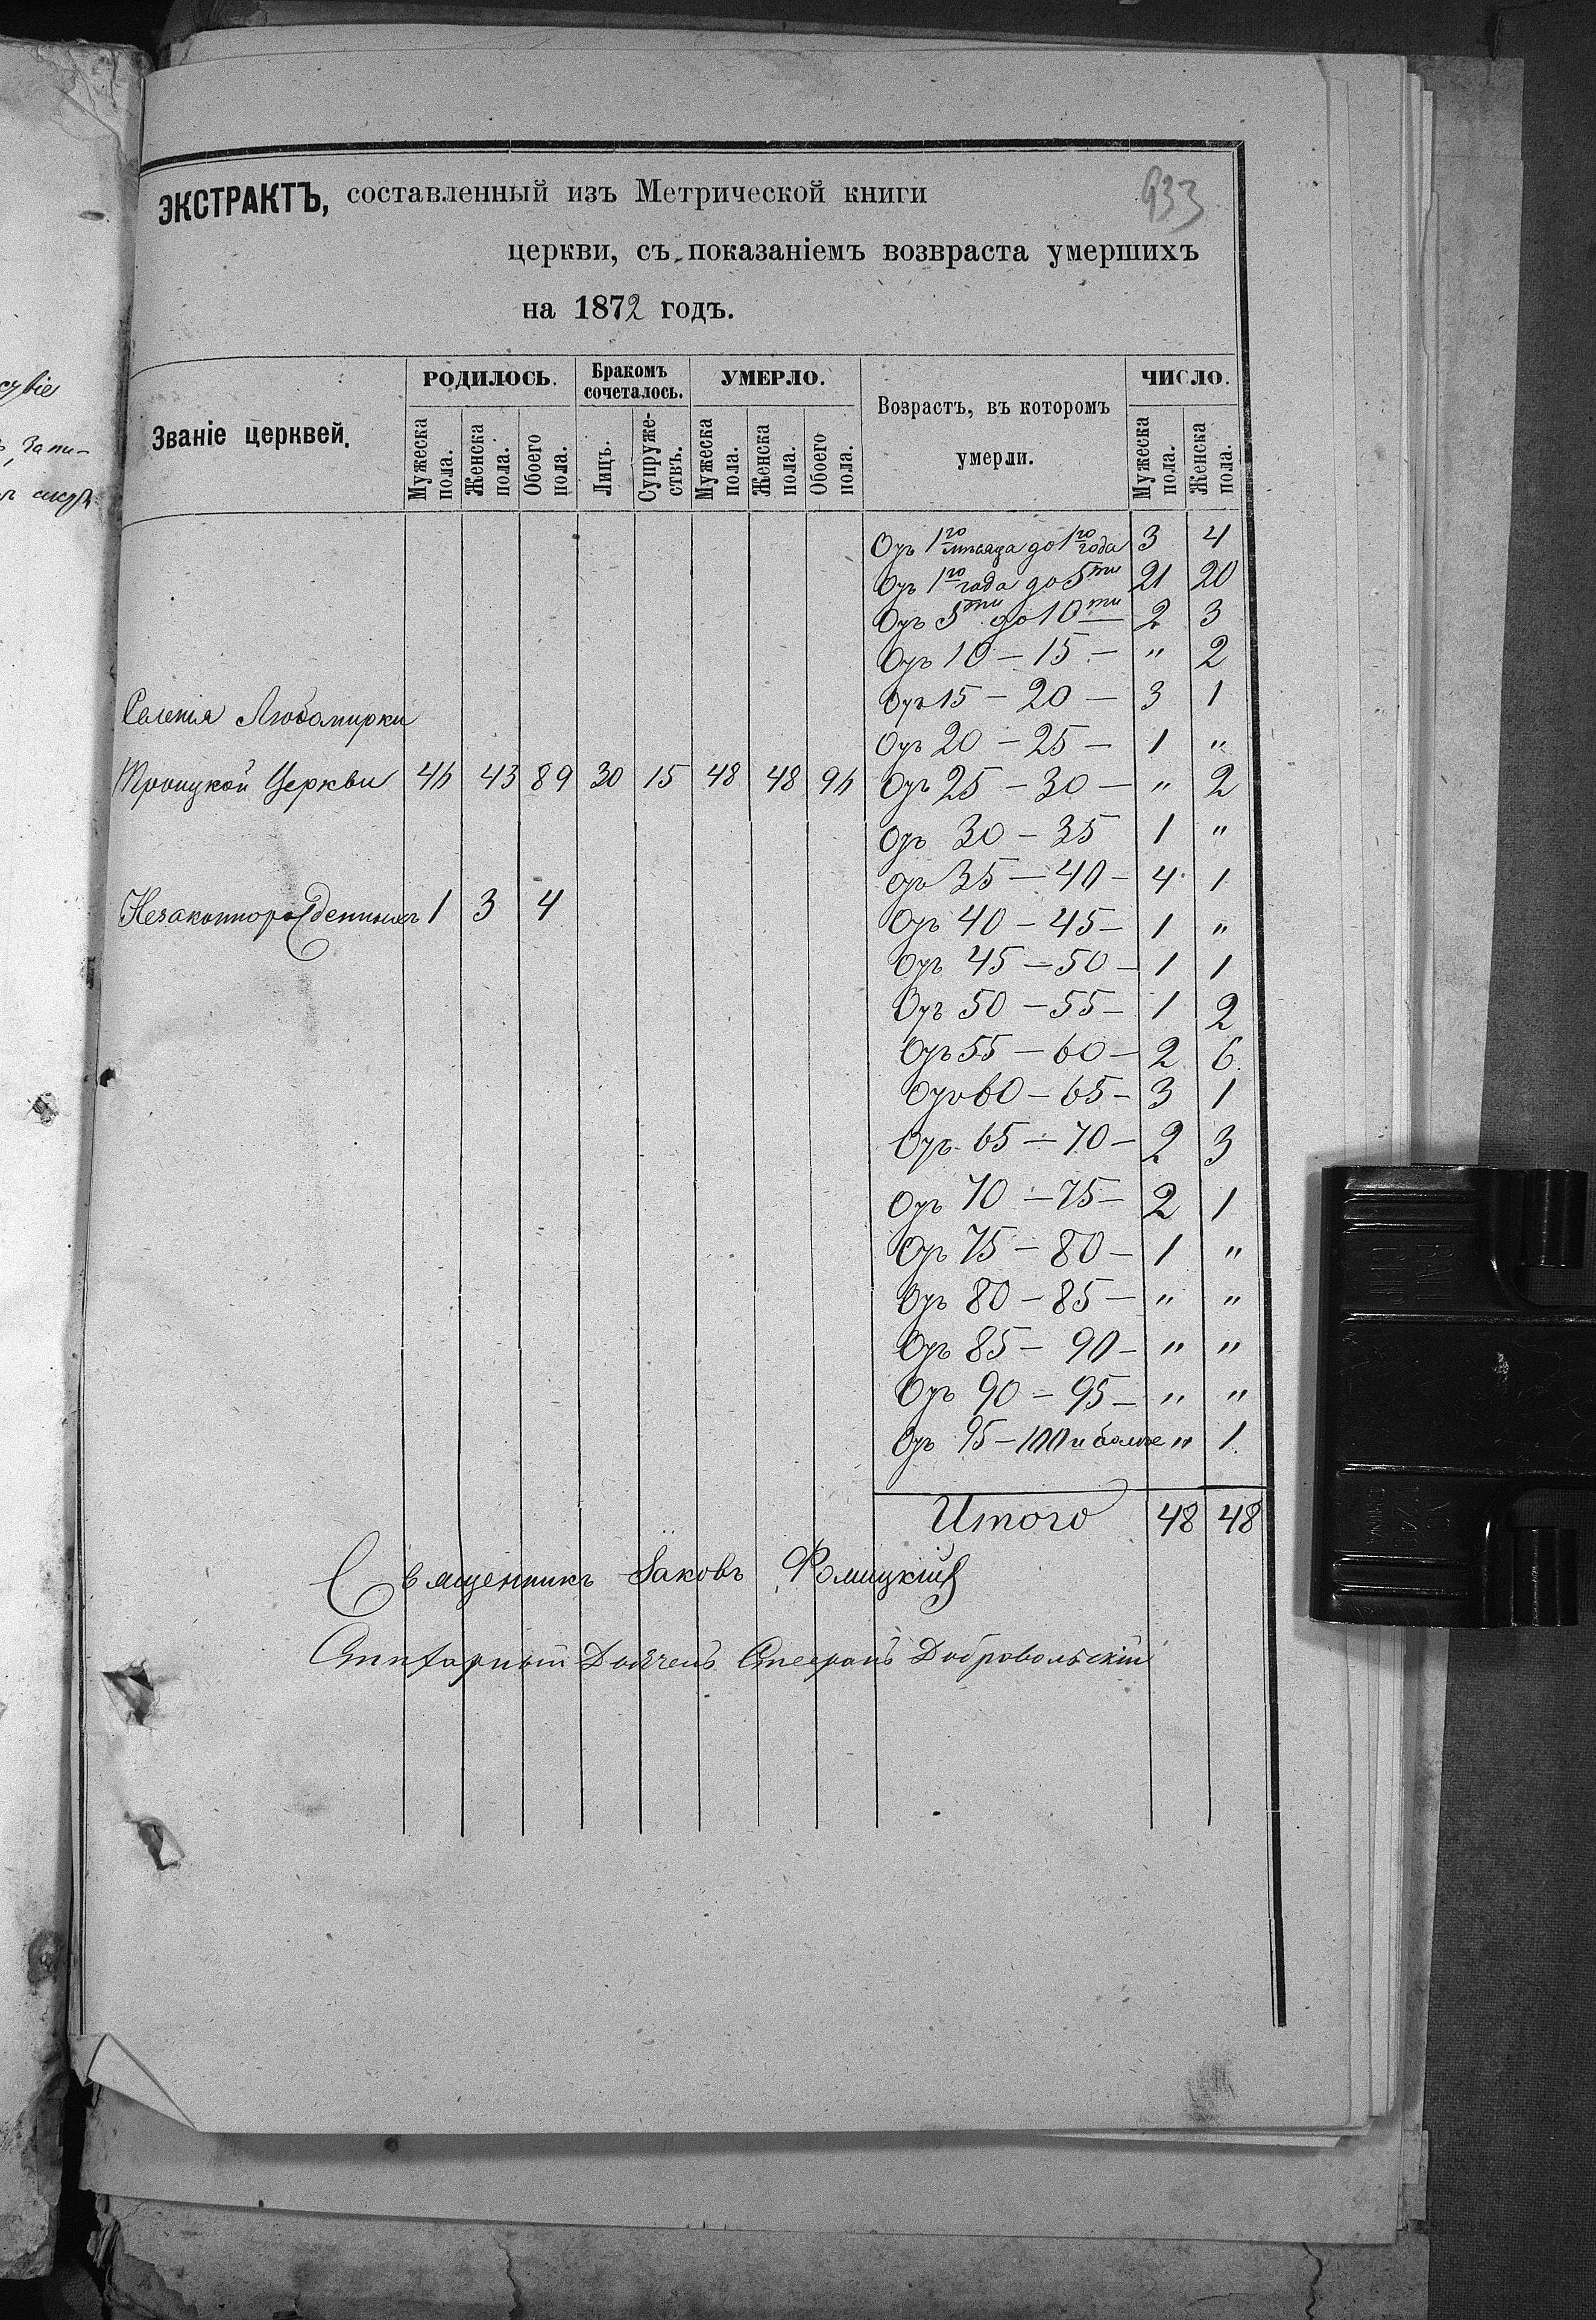 933
ЭКСТРАКТЪ, составленный изъ Метрической книги
церкви, съ показаніемъ возвраста умершихъ
на 1872 годъ.
Званіе церквей.
РОДИЛОСЬ.
Мужеска пола.
Женска пола.
Обоего пола.
Бракомъ сочеталось.
Лицъ.
Супруже-ствъ.
УМЕРЛО.
Мужеска пола.
Женска пола.
Обоего пола.
Возрастъ, въ которомъ
умерли.
ЧИСЛО.
Мужеска пола.
Женска пола.
Отъ 1го мѣсяца до 1го года 3 4
Отъ 1го года до 5ти 21 20
Отъ 5ти до 10ти — 2 3
Отъ 10 — 15 — " 2
Отъ 15 — 20 — 3 1
Селенія Любомирки
Отъ 20 — 25 — 1 "
Троицкой Церкви 46 43 89 30 15 48 48 96 Отъ 25 — 30 — " 2
Отъ 30 — 35 1 "
Отъ 35 — 40 — 4 1
Незаконнорожденныхъ 1 3 4 Отъ 40 — 45 — 1 "
Отъ 45 — 50 — 1 1
Отъ 50 — 55 — 1 2
Отъ 55 — 60 — 2 6
Отъ 60 — 65 — 3 1
Отъ 65 — 70 — 2 3
Отъ 70 — 75 — 2 1
Отъ 75 — 80 — 1 "
Отъ 80 — 85 — " "
Отъ 85 — 90 — " "
Отъ 90 — 95 — " "
Отъ 95 — 100 и болѣе " 1
Итого 48 48
Священникъ Іаковъ Ромицкій
Дьячекъ Добровольскій